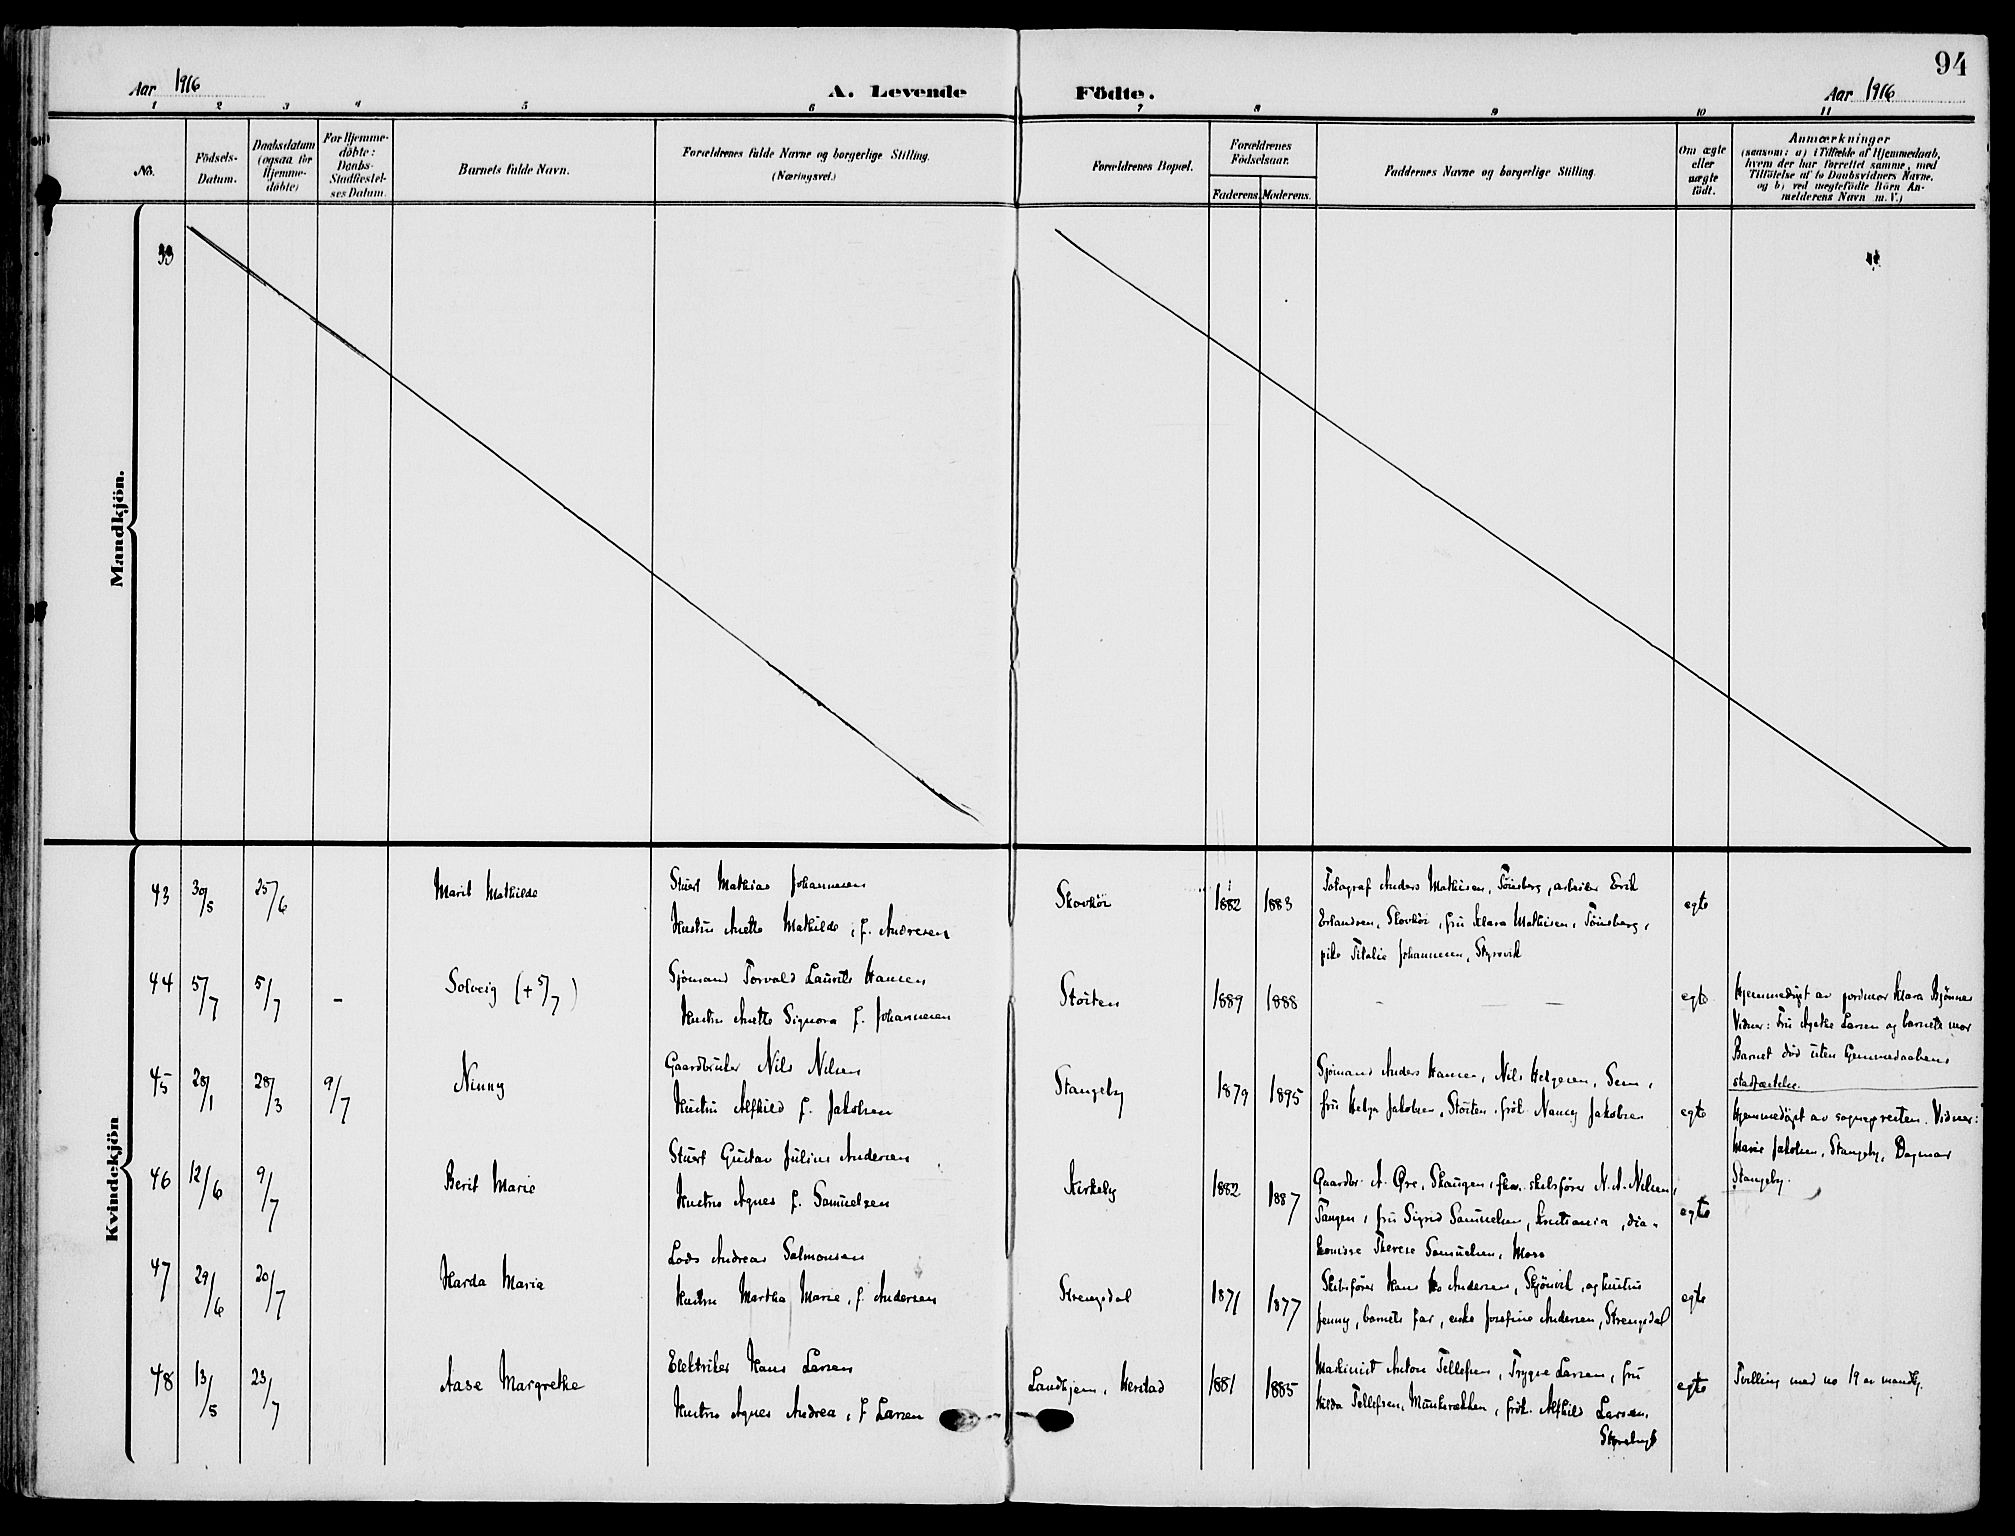 94
Aar 1916 A. Levende Födte. Aar 1916
1 2 3 4 5 6 7 8 9 10 11
No.
Födsels-
Datum.
Daabsdatum
(ogsaa for
Hjemme-
döbte)
For Hjemme-
döbte:
Daabs-
Stadfæstel-
ses Datum.
Barnets fulde Navn.
Forældrenes fulde Navne og borgerlige Stilling.
(Næringsvei.)
Forældrenes Bopæl.
Forældrenes
Födselsaar.
Faderens. Moderens.
Faddernes Navne og borgerlige Stilling.
Om ægte
eller
uægte
födt.
Anmærkninger
(saasom: a) i Tilfælde af Hjemmedaab,
hvem der har forrettet samme, med
Tilföielse af to Daabsvidners Navne,
og b) ved uægtefödte Börn An-
melderens Navn m. V.)
Mandkjön.
33
Kvindekjön
43 30/5 25/6 Marit Mathilde
Stuert Mathias Johannesen
Hustru Anette Mathilde, f. Andresen
Skovkör 1882 1883
Fotograf Anders Mathisen, Tönsberg, arbeider Erik
Erlandsen, Skovkör, fru Klara Mathisen, Tönsberg,
pike Titalie Johannesen,
egte
44 5/7 5/7 - Solveig (+ 5/7)
Sjömand Torvald Laurits Hansen
Hustru Anette Signora f. Johannesen
Stöiten 1889 1888 - -
egte
Hjemmedöpt av jordmor Klara Bjönnes
Vidner: Fru Agethe Larsen og barnets mor
Barnet död uten hjemmedaabens
stadfæstelse.
45 28/1 28/3 9/7 Ninny
Gaardbruker Nils Nilsen
Hustru Alfhild f. Jakobsen
Stangeby 1879 1895
Sjömand Anders Hansen, Nils Helgesen, Sem,
fru Helga Jakobsen, Stöiten, frök. Nancy Jakobsen
egte
Hjemmedöpt av sogneprесten. Vidner:
Marie Jakobsen, Stangeby, Dagmar
Stangeby.
46 12/6 9/7 Berit Marie
Stuert Gustav Julius Andersen
Hustru Agnes f. Samuelsen
Kirkeby 1882 1887
Gaardbr. A. Øre, Skaugen, skibsförer N. A. Nilsen,
Tangen, fru Sigrid Samuelsen, Kristiania, dia-
konisse Therese Samuelsen, Moss
egte
47 29/6 20/7 Harda Maria
Lods Andreas Salmonsen
Hustru Martha Marie, f. Andersen
Strengsdal 1871 1877
Skibsförer Hans Andersen, Skjönvik, og hustru
Jenny, barnets far, enke Josefine Andersen, Strengsdal
egte
48 13/5 23/7 Aase Margrethe
Elektriker Hans Larsen
Hustru Agnes Andrea, f. Larsen
Landhjem, Herstad 1881 1885
Maskinist Anton Tellefsen, Trygve Larsen, fru
Hilda Tellefsen, Munkerekken, frök. Alfhild Larsen,
egte
Tvilling med no 19 av mandkj.